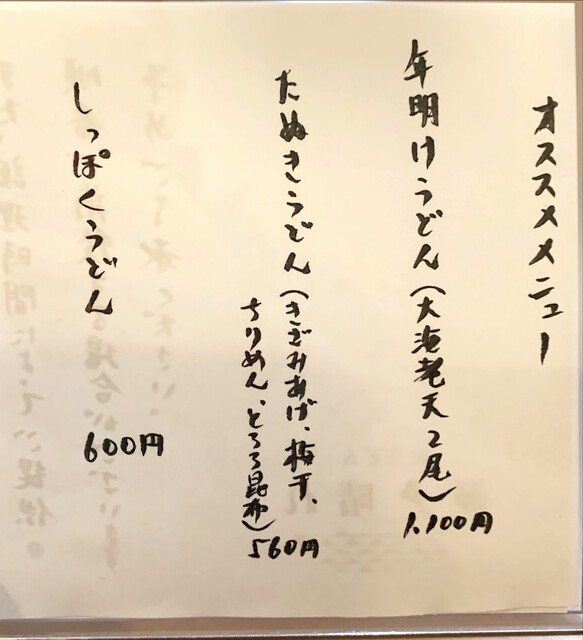 オススメメニュー
年明けうどん(大海老天2尾)
1,100円
たぬきうどん(きざみあげ、梅干、
ちりめん、とろろ昆布)
560円
しっぽくうどん
600円